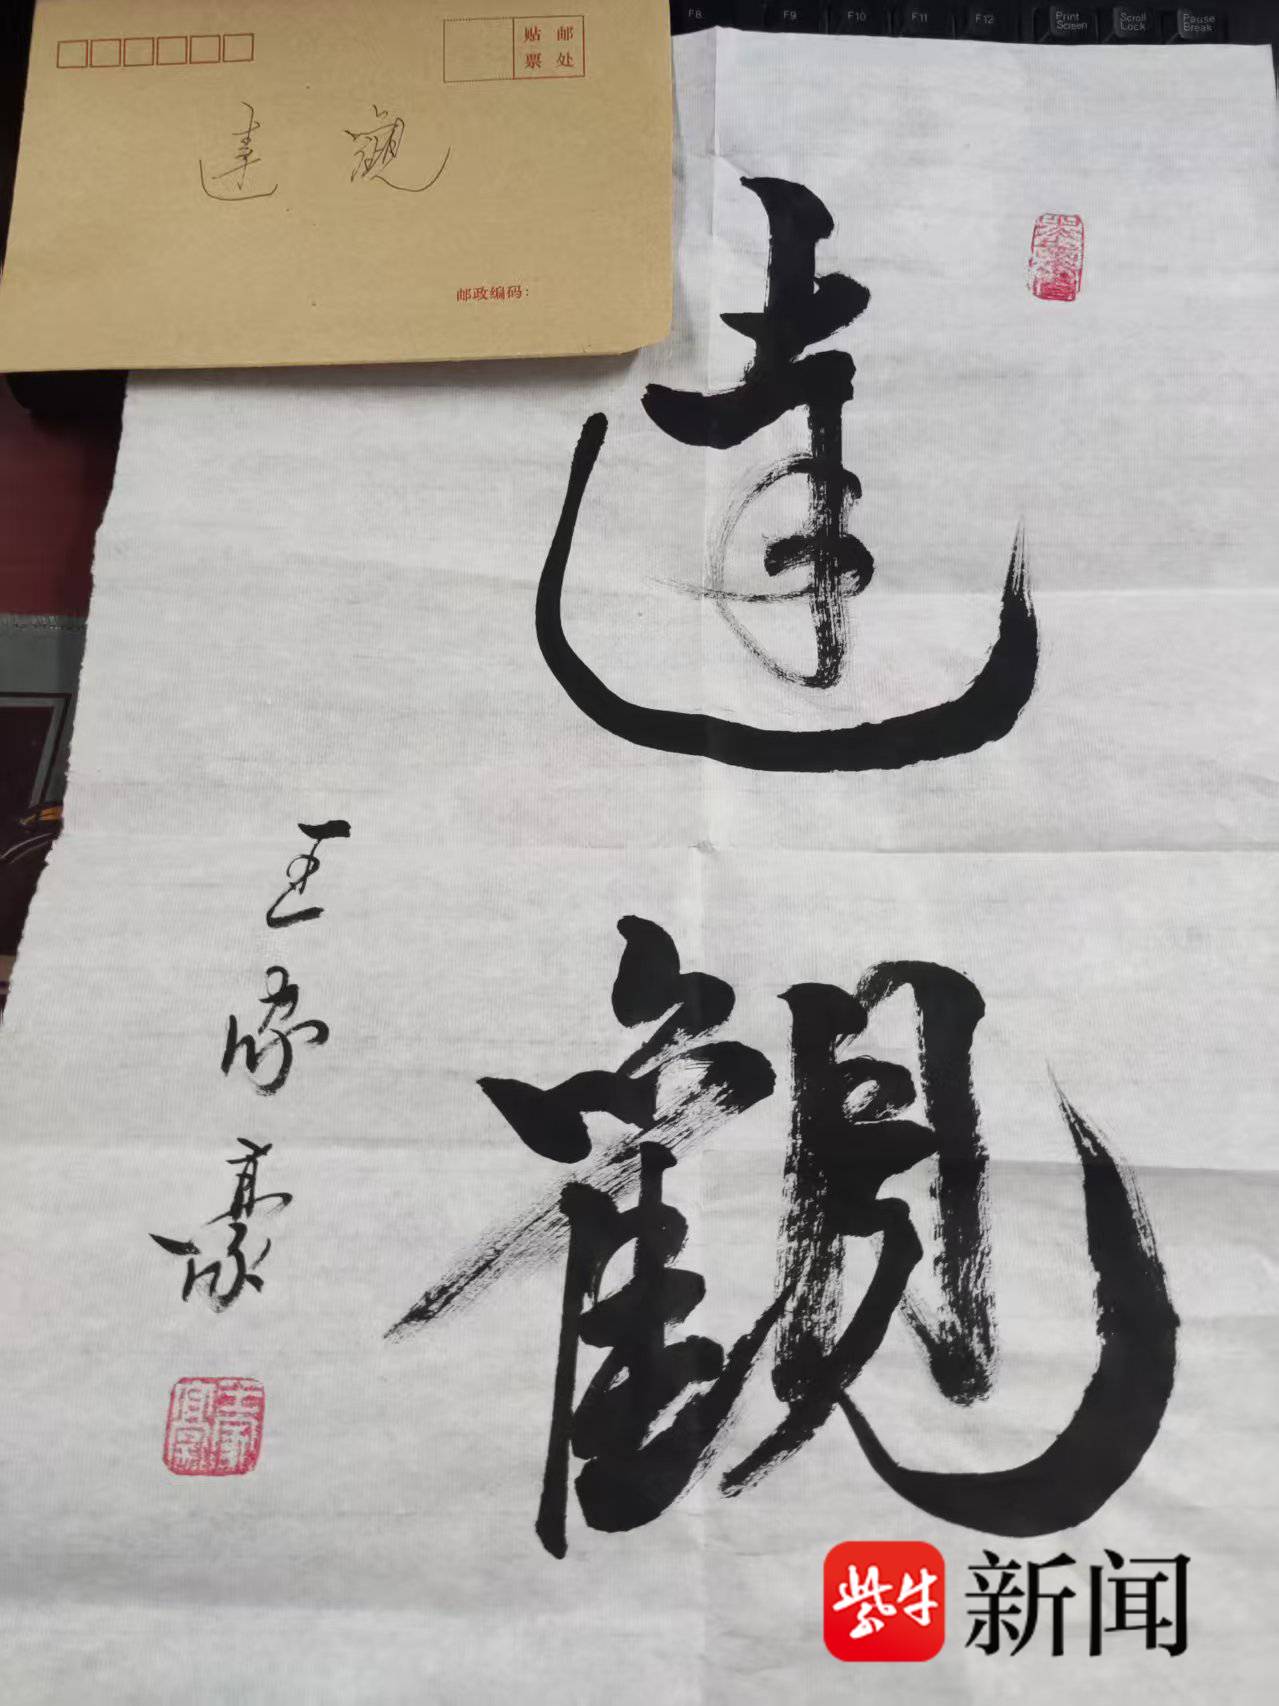 F8 F9 F10 F11 F12 Print Screen Scroll Lock Pause Break
贴邮
票处
達觀
邮政编码：
達
觀
王家豪
紫牛新闻